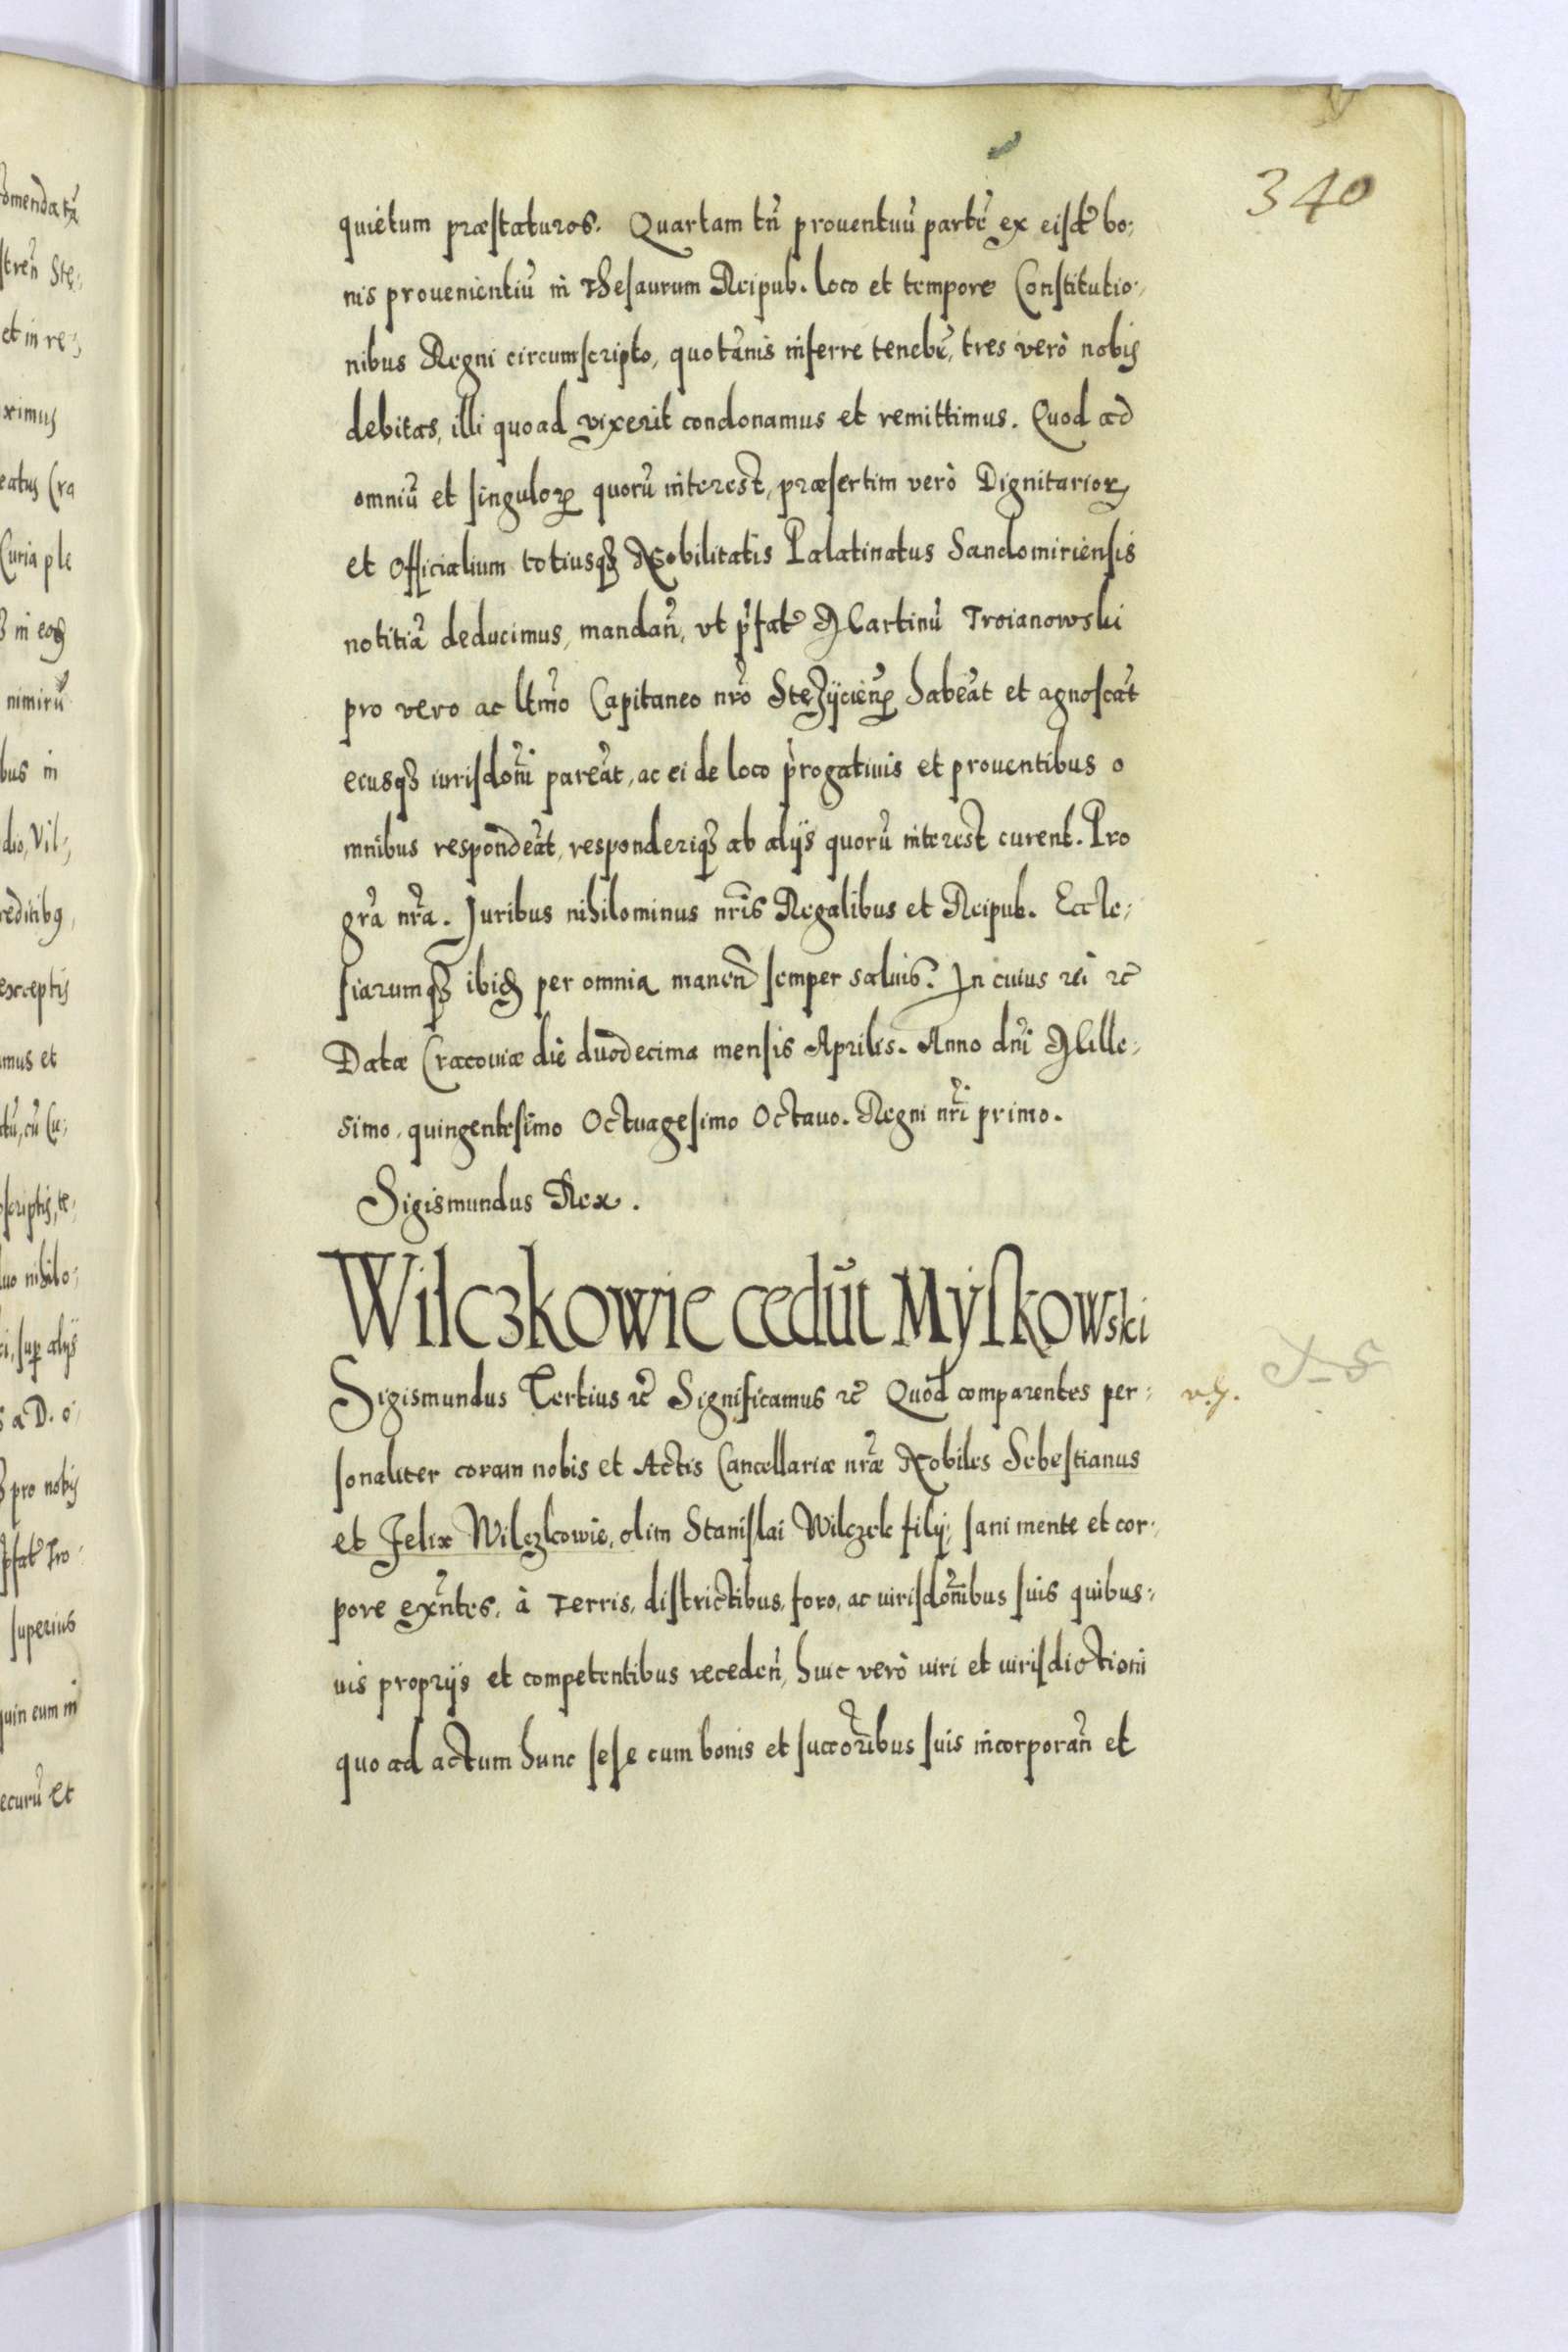 340
quietum præstaturos. Quartam tñ prouentuũ partẽ ex eisd bo:
nis prouenientiũ in Thesaurum Reipub. loco et tempore Constitutio:
nibus Regni circumscripto, quotãnis inferre tenebr̃, tres verò nobis
debitas, illi quoad vixerit condonamus et remittimus. Quod ad
omniũ et singuloꝝ quorũ interest, præsertim verò Dignitarioꝝ
et Officialium totiusqꝫ Nobilitatis Palatinatus Sandomiriensis
notitiã deducimus, mandañ, vt p̃fat Martinũ Troianowski
pro vero ac ltm̃o Capitaneo nr̃o Stezÿcień habeãt et agnoscãt
eiusqꝫ iurisdoñi pareãt, ac ei de loco p̃rogatiuis et prouentibus o
mnibus respondeãt, responderiqꝫ ab alijs quorũ interest curent. Pro
gr̃a nr̃a. Juribus nihilominus nr̃is Regalibus et Reipub. Eccle:
siarumqꝫ ibid per omnia maneñ semper saluis. In cuius rei rc̃
Datæ Cracouiæ die duodecima mensis Aprilis. Anno dñi Mille:
simo, quingentesimo Octuagesimo Octauo. Regni nr̃i primo.
Sigismundus Rex.
Wilczkowie cedũt Myſkowski
Sigismundus Tertius rc̃ Significamus rc̃ Quod comparentes per:
sonaliter coram nobis et Actis Cancellariæ nr̃æ Nobiles Sebestianus
et Felix Wilczkowie, olim Stanislai Wilczek filij, sani mente et cor:
pore exñtes, à Terris, districtibus, foro, ac iurisdoñibus suis quibus:
uis proprijs et competentibus recedeñ, huic verò iuri et iurisdictioni
quo ad actum hunc sese cum bonis et succoribus suis incorporañ et